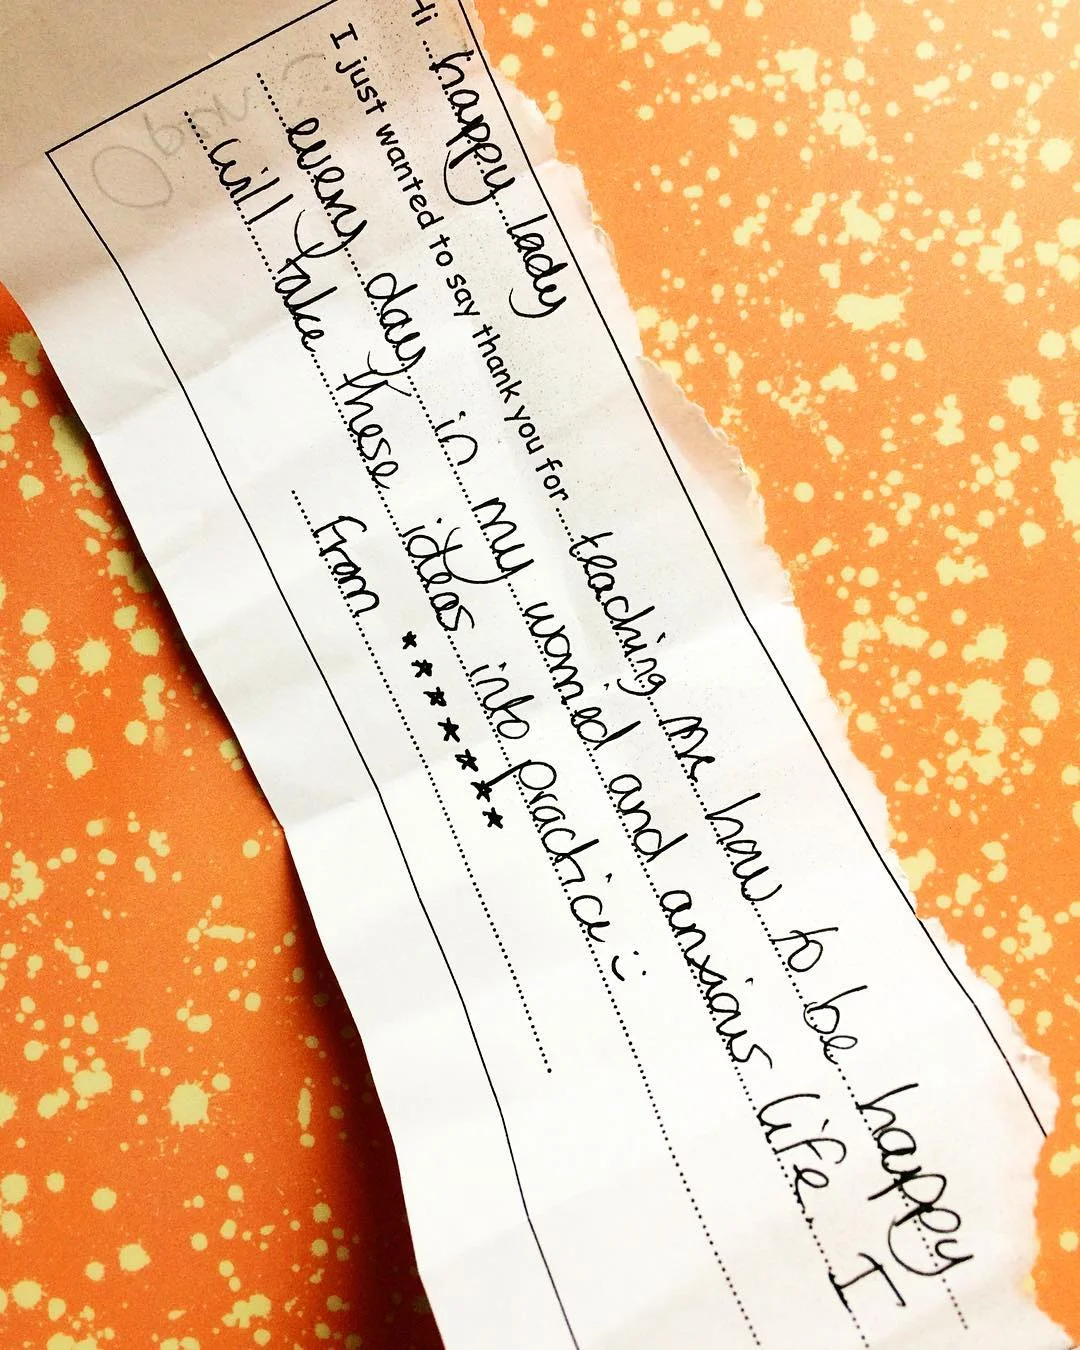 Hi happy lady
I just wanted to say thank you for teaching me how to be happy
every day in my worried and anxious life. I
will take these ideas into practice :)
from *******
Open :)